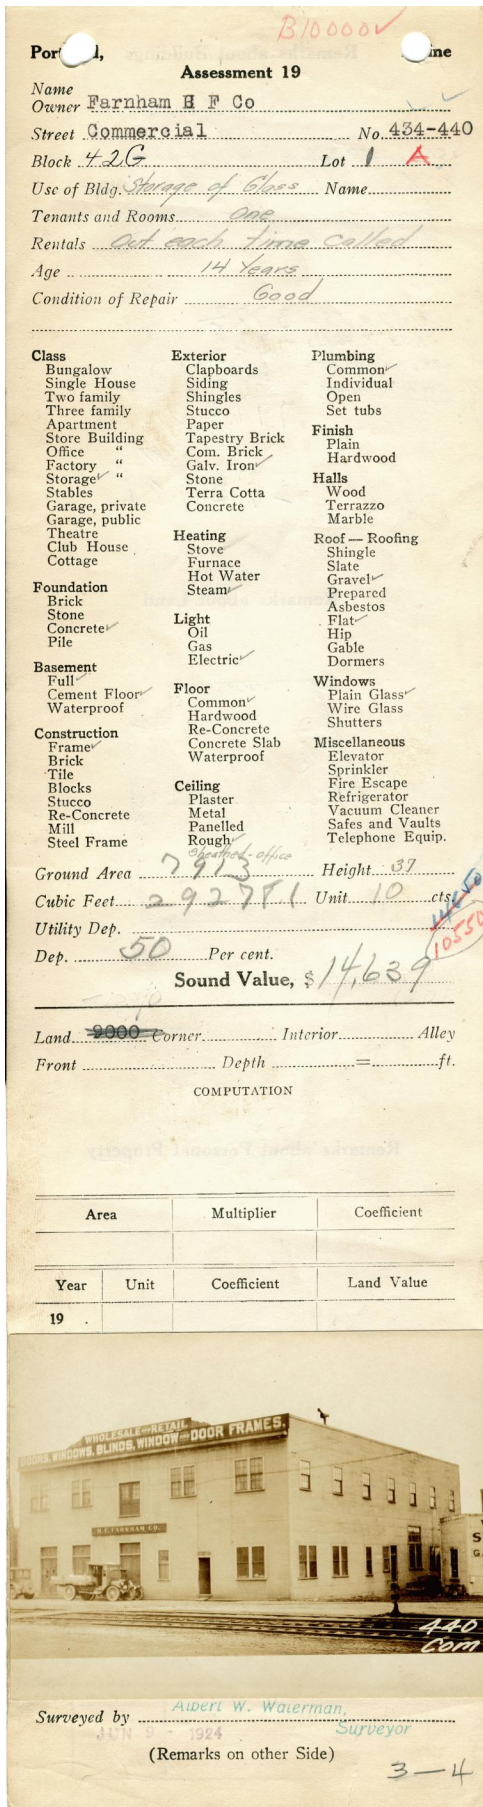 B10000✓
Assessment 19
Name
Owner Farnham H F Co
Street Commercial No. 434-440
Block 42G Lot 1 A
Use of Bldg. Storage of Glass Name
Tenants and Rooms one
Rentals Out each time called
Age 14 Years
Condition of Repair Good
Class
Bungalow
Single House
Two family
Three family
Apartment
Store Building
Office "
Factory "
Storage✓ "
Stables
Garage, private
Garage, public
Theatre
Club House
Cottage
Foundation
Brick
Stone
Concrete✓
Pile
Basement
Full✓
Cement Floor✓
Waterproof
Construction
Frame✓
Brick
Tile
Blocks
Stucco
Re-Concrete
Mill
Steel Frame
Exterior
Clapboards
Siding
Shingles
Stucco
Paper
Tapestry Brick
Com. Brick
Galv. Iron✓
Stone
Terra Cotta
Concrete
Heating
Stove✓
Furnace
Hot Water
Steam✓
Light
Oil
Gas
Electric✓
Floor
Common✓
Hardwood
Re-Concrete
Concrete Slab
Waterproof
Ceiling
Plaster
Metal
Panelled
Rough✓
Sheathed-office
Plumbing
Common✓
Individual
Open
Set tubs
Finish
Plain
Hardwood
Halls
Wood
Terrazzo
Marble
Roof — Roofing
Shingle
Slate
Gravel✓
Prepared
Asbestos
Flat✓
Hip
Gable
Dormers
Windows
Plain Glass✓
Wire Glass
Shutters
Miscellaneous
Elevator
Sprinkler
Fire Escape
Refrigerator
Vacuum Cleaner
Safes and Vaults
Telephone Equip.
Ground Area 7913 Height 37
Cubic Feet 292781 Unit 10 cts.
Utility Dep.
10550
Dep. 50 Per cent.
Sound Value, $ 14,639
Land 9000 Corner Interior Alley
Front Depth = ft.
COMPUTATION
Area Multiplier Coefficient
Year Unit Coefficient Land Value
19
WHOLESALE AND RETAIL
DOORS, WINDOWS, BLINDS, WINDOW AND DOOR FRAMES.
H.F. FARNHAM CO.
440
Com
Surveyed by Albert W. Waterman,
Surveyor
JUN 9 - 1924
(Remarks on other Side)
3-4